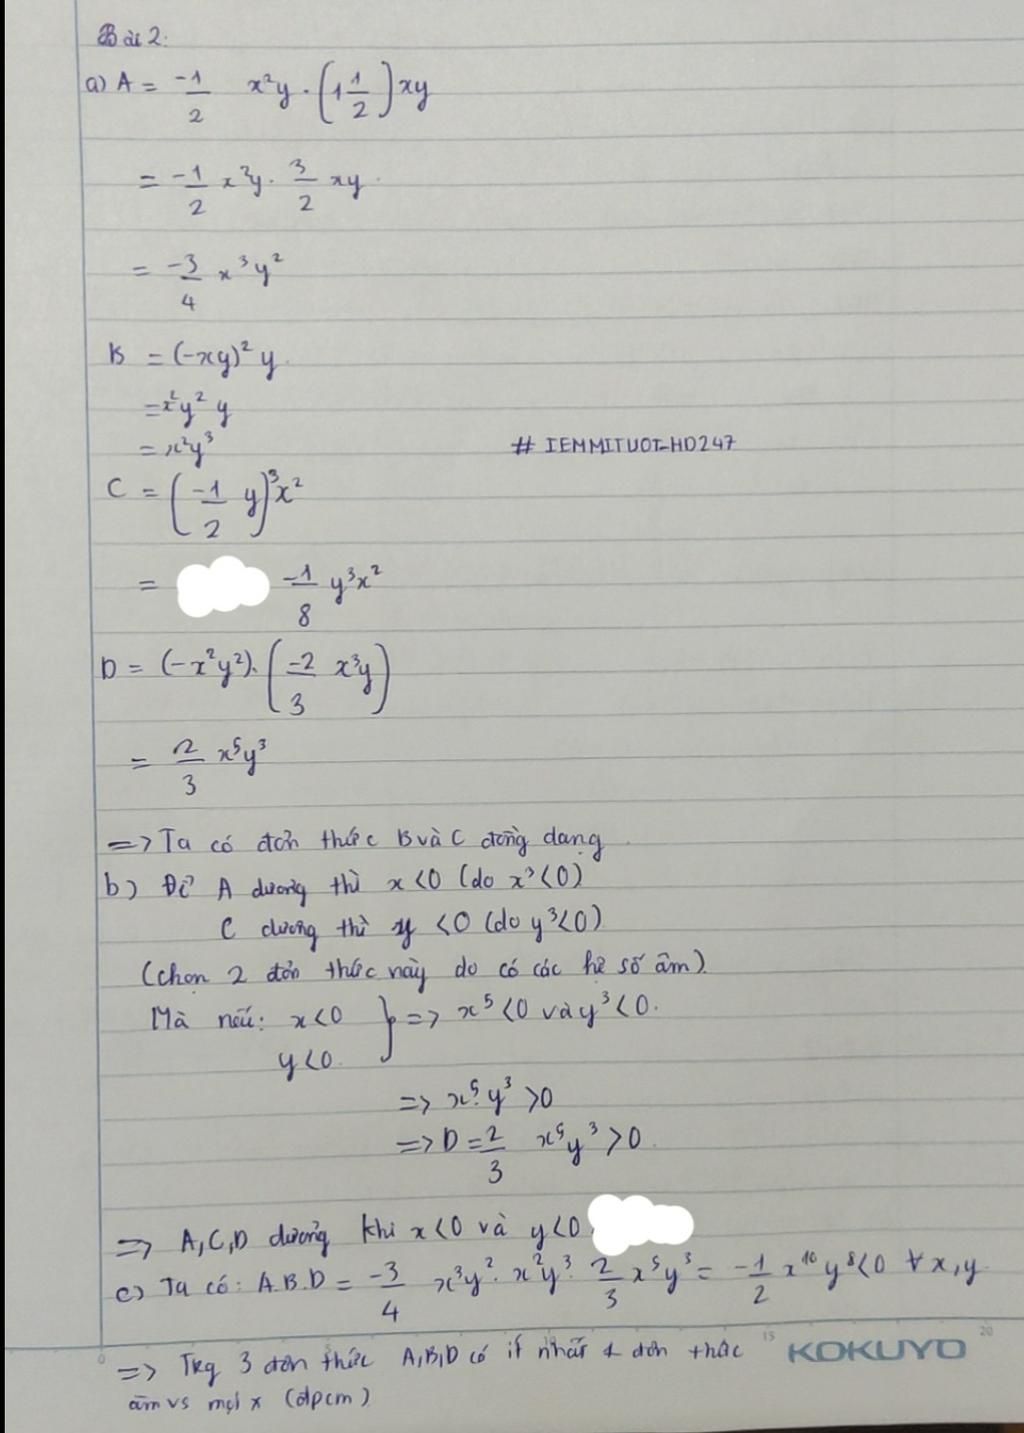 Bài 2:
a) A = -1/2 x²y . (1 1/2) xy
= -1/2 x²y . 3/2 xy
= -3/4 x³y²
B = (-xy)² y
= x²y² y
= x²y³
# IEMMITUOT-HD247
C = (-1/2 y)³x²
= -1/8 y³x²
D = (-x²y²). (-2/3 x³y)
= 2/3 x⁵y³
=> Ta có đơn thức B và C đồng dạng
b) Để A dương thì x <0 (do x³<0)
C dương thì y <0 (do y³<0)
(chọn 2 đơn thức này do có các hệ số âm).
Mà nếu: x<0 } => x⁵ <0 và y³ <0.
y<0.
=> x⁵.y³ >0
=> D = 2/3 x⁵y³ >0.
=> A,C,D dương khi x<0 và y<0
c) Ta có: A.B.D = -3/4 x³y². x²y³. 2/3 x⁵y³ = -1/2 x¹⁰ y⁸<0 ∀ x,y
=> Trg 3 đơn thức A,B,D có ít nhất 1 đơn thức
âm vs mọi x (đpcm)
0 15 KOKUYO 20